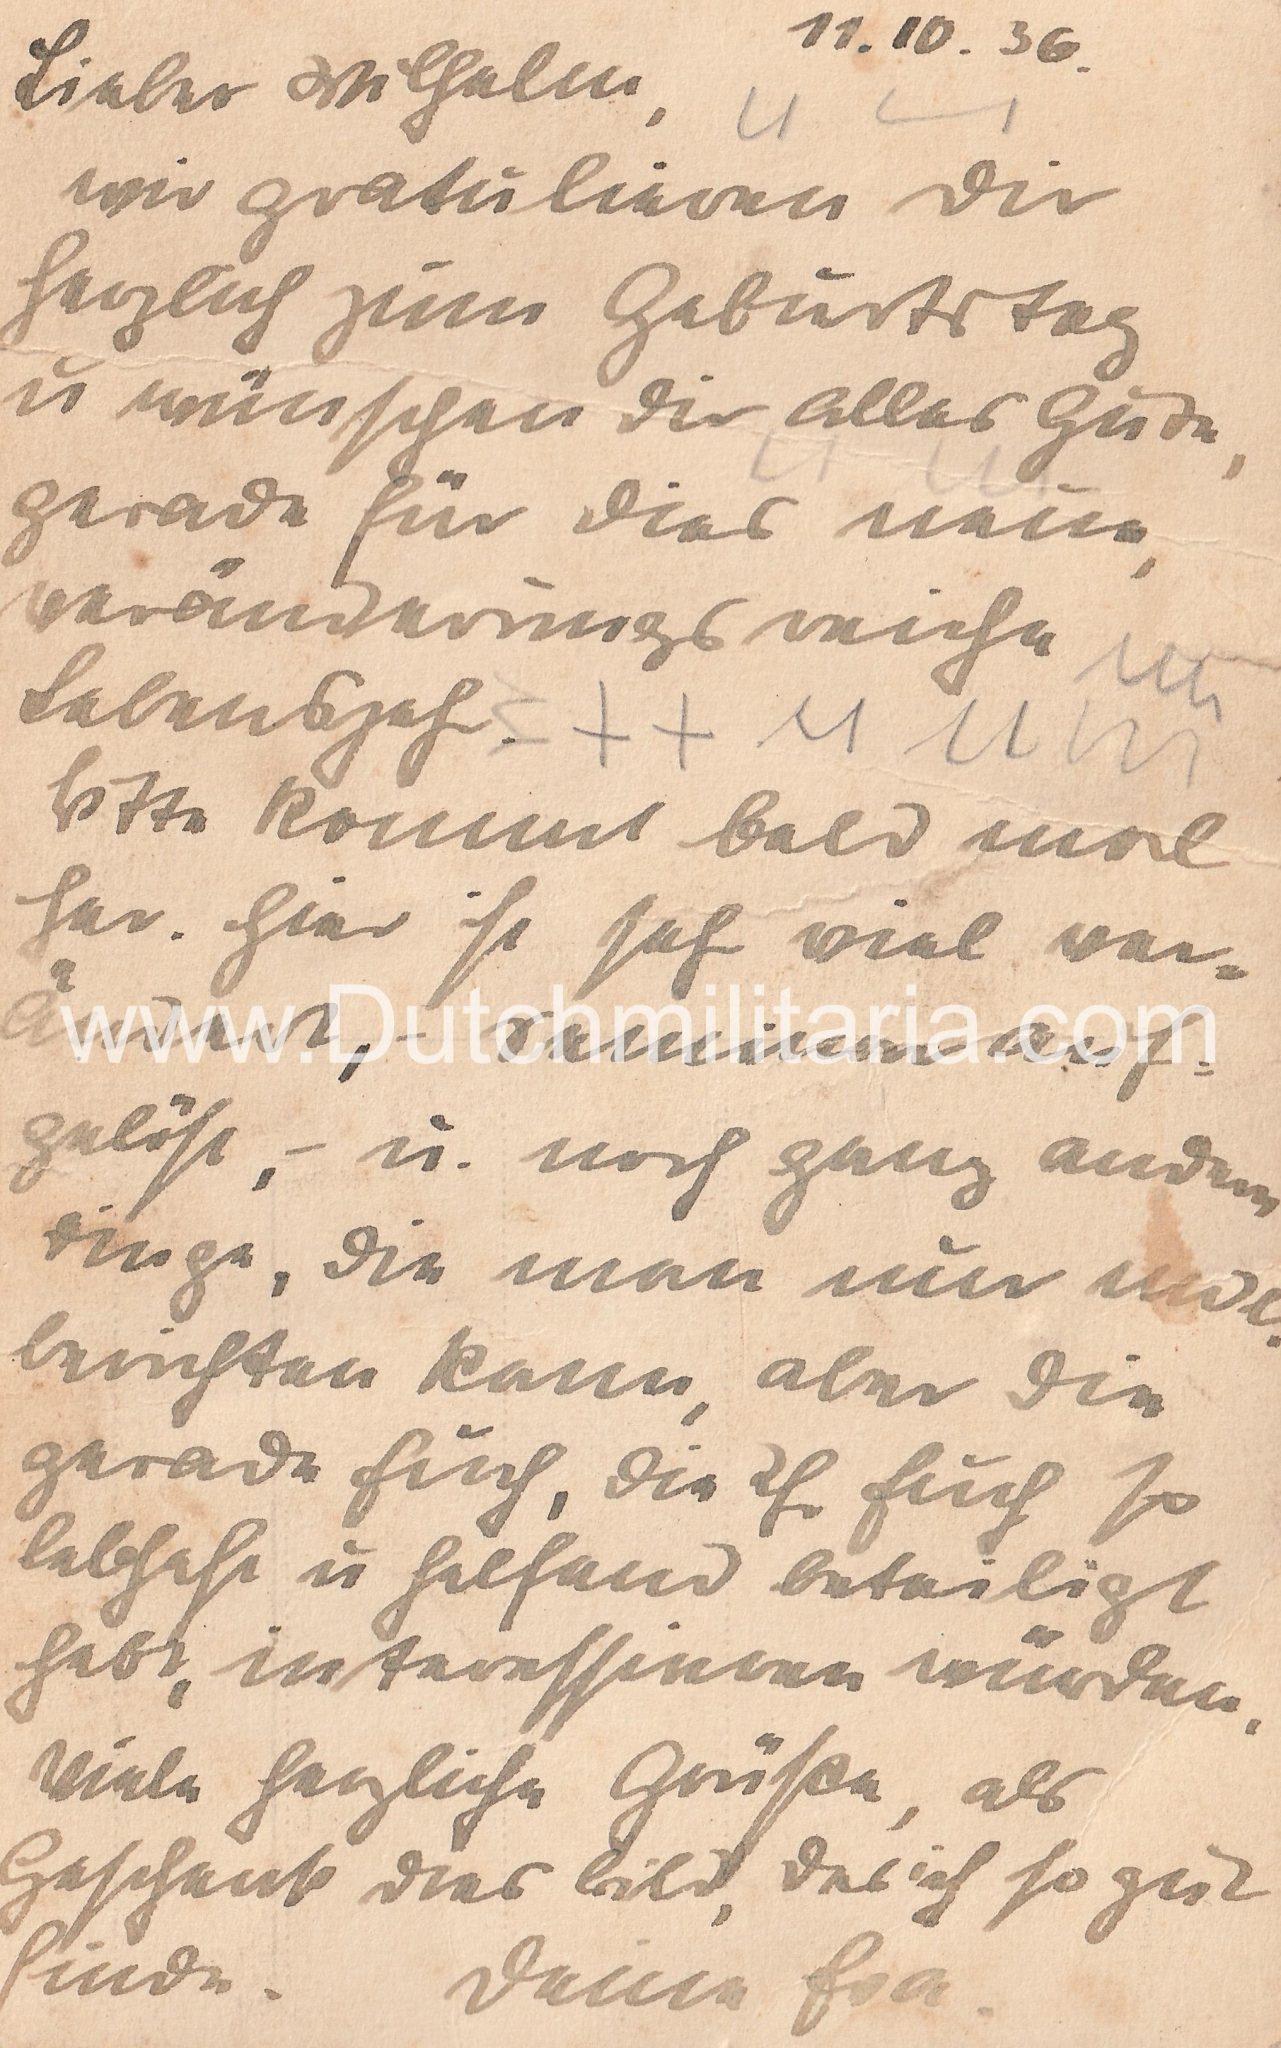 11.10.36.
Lieber Wilhelm,
wir gratulieren Dir
herzlich zum Geburtstag
u wünschen Dir alles Gute,
gerade für dies neue,
veränderungsreiche
Lebensjahr.
bitte kommt bald mal
her. hier ist sehr viel ver-
ändert, – Seminar auf-
gelöst, – u. noch ganz andere
Dinge, die man nur mdl.
berichten kann, aber die
gerade Euch, die Ihr Euch so
lebhaft u helfend beteiligt
habt, interessieren würden.
Viele herzliche Grüße, als
Geschenk dies Bild, das ich so gut
finde. Deine Eva.
www.Dutchmilitaria.com